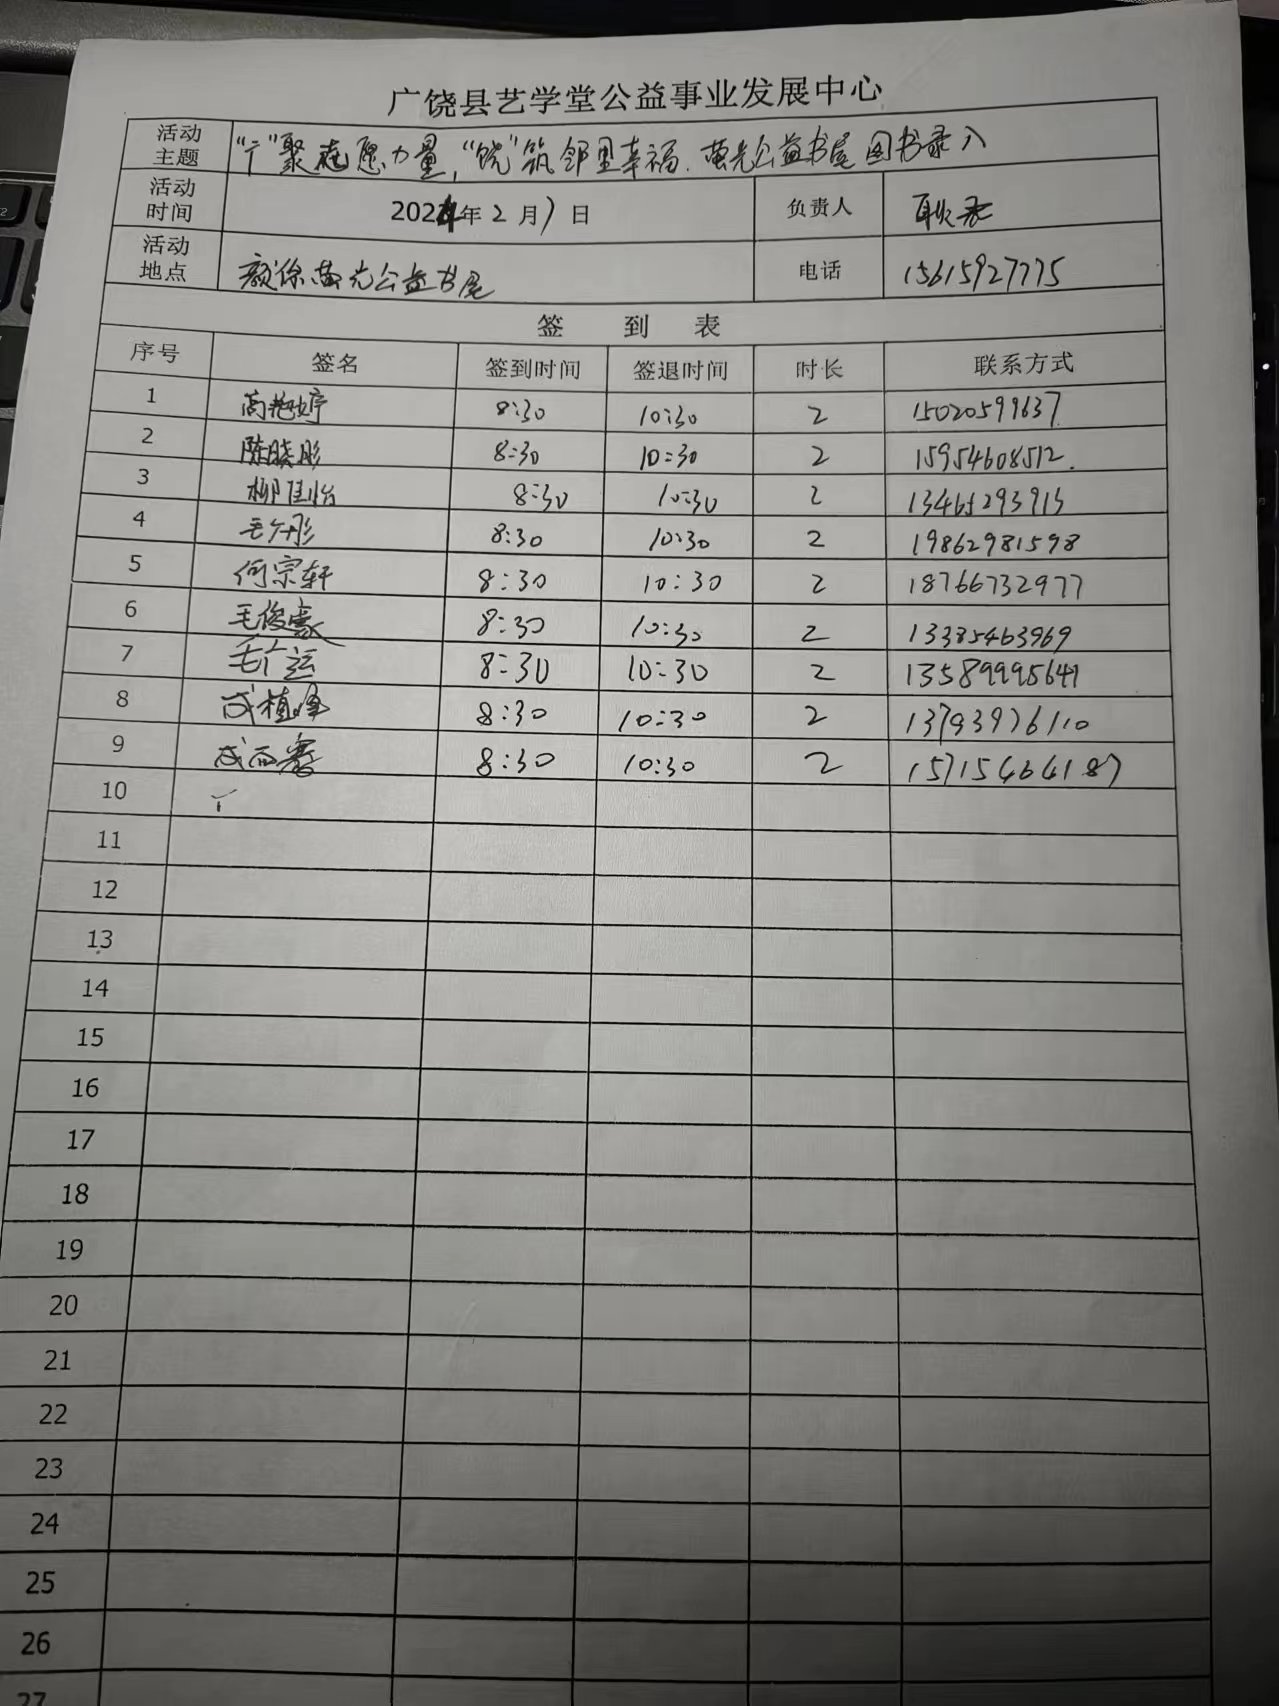 广饶县艺学堂公益事业发展中心
活动主题 “广”聚志愿力量,“饶”筑邻里幸福.萤光公益书屋图书录入
活动时间 2024年2月7日 负责人
活动地点 颜徐萤光公益书屋 电话 15615927775
签到表
序号 签名 签到时间 签退时间 时长 联系方式
1 高艳婷 8:30 10:30 2 15020599637
2 陈晓彤 8:30 10:30 2 15954608512.
3 柳佳怡 8:30 10:30 2 13465293913
4 毛 彤 8:30 10:30 2 19862981598
5 何宗轩 8:30 10:30 2 18766732977
6 毛俊豪 8:30 10:30 2 13385463969
7 毛广运 8:30 10:30 2 13589995641
8 成植峰 8:30 10:30 2 13793976110
9 成西 8:30 10:30 2 15715464187
10
11
12
13
14
15
16
17
18
19
20
21
22
23
24
25
26
27